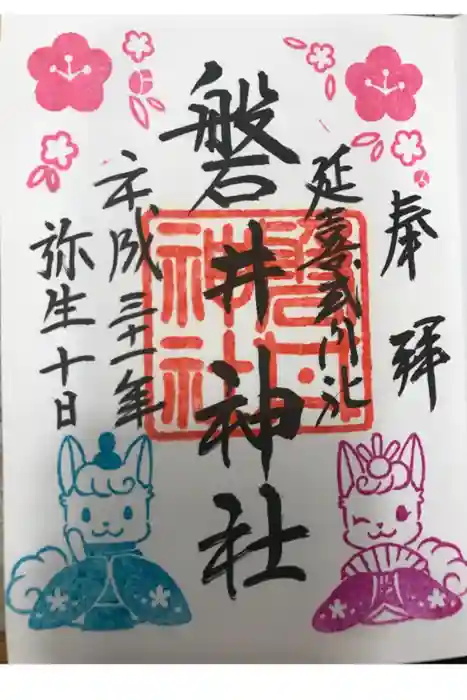 奉拝
延喜式内社
磐井神社
平成三十一年
弥生十日
磐井神社